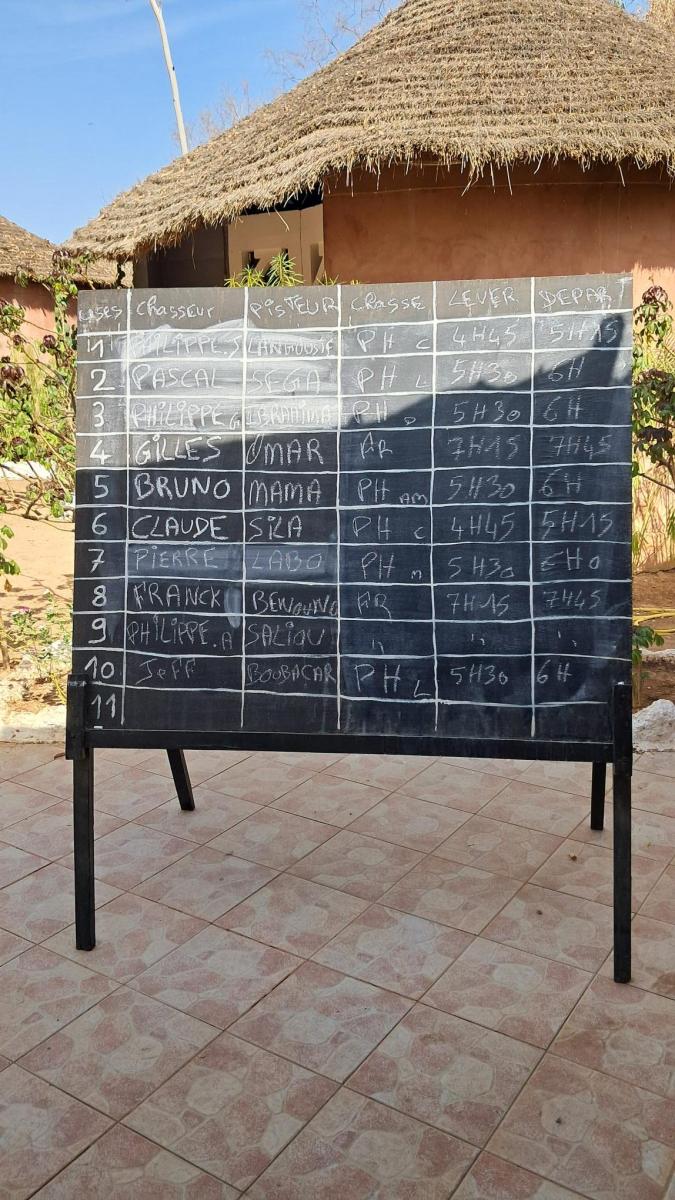 CASES Chasseur PISTEUR CHASSE LEVER DEPAR
1 PHILIPPE.S LANGOUSTE PH C 4H45 5H15
2 PASCAL SEGA PH L 5H30 6H
3 PHILIPPE G IBRAHIMA PH 5H30 6H
4 GILLES OMAR AR 7H15 7H45
5 BRUNO MAMA PH AM 5H30 6H
6 CLAUDE SILA PH C 4H45 5H15
7 PIERRE LABO PH M 5H30 6H0
8 FRANCK AR 7H15 7H45
9 PHILIPPE.A SALIOU " " "
10 JeFF BOUBACAR PH L 5H30 6H
11